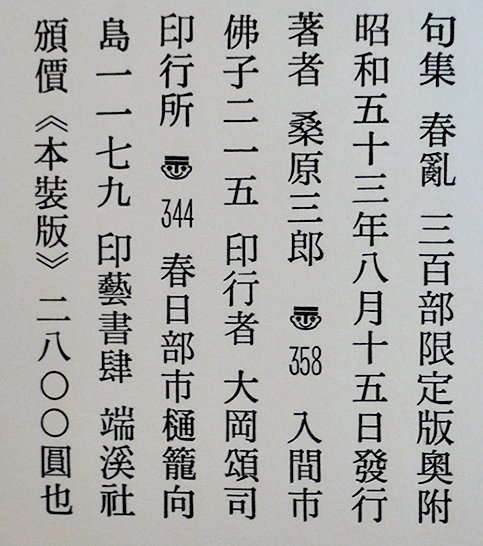 句集 春亂 三百部限定版奧附
昭和五十三年八月十五日發行
著者 桑原三郎 〠358 入間市
佛子二一五 印行者 大岡頌司
印行所 〠344 春日部市樋籠向
島一一七九 印藝書肆 端溪社
頒價《本裝版》二八〇〇圓也